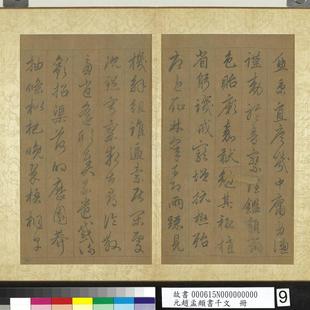 魚秉直庶幾中庸勞謙
謹敕聆音察理鑑貌辨
色貽厥嘉猷勉其祗植
省躬譏誡寵增抗極殆
辱近恥林皋幸即兩疏見
機解組誰逼索居閑處
沉默寂寥求古尋論散
慮逍遙欣奏累遣慼謝
歡招渠荷的歷園莽
抽條枇杷晚翠梧桐早
故書 000615N000000000
元趙孟頫書千文 冊
9